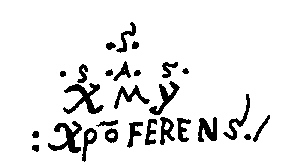 .S.
.S .A. S.
X M Y
: Xpõ FERENS ./